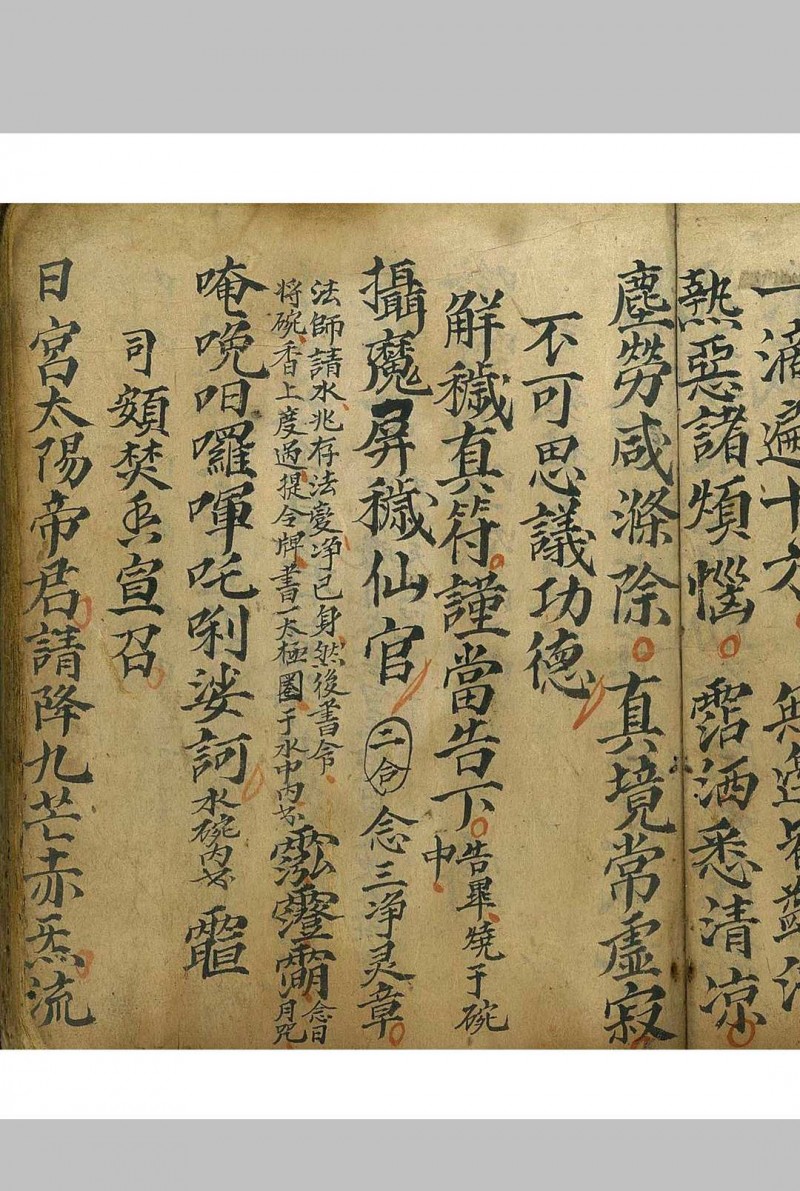 一滴遍十方 無邊皆蓋
熱惡諸煩惱 霑洒悉清凉
塵勞咸滌除 真境常虛寂
不可思議功德
解穢真符謹當告下告畢燒于碗中
攝魔屏穢仙官 二合 念三净灵章
法師請水兆存法變净已身然後書令
将碗香上度過提令牌書一太極圈于水中内书 念日月咒
唵晚呬囉喗吒唎娑訶水碗内书
司額焚香宣召
日宮太陽帝君請降九芒赤炁流